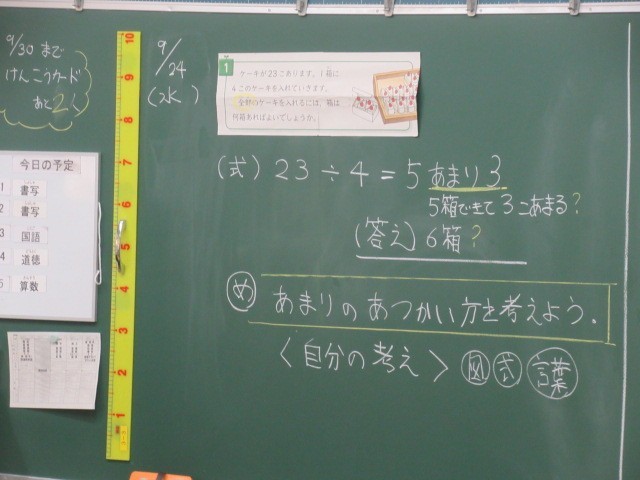 9/30 まで
けんこうカード
あと2く
9/24
(水)
1
ケーキが23こあります。1箱に
4このケーキを入れていきます。
全部のケーキを入れるには、箱は
何箱あればよいでしょうか。
(式) 23÷4=5あまり3
5箱できて3こあまる?
(答え) 6箱?
め あまりのあつかい方を考えよう。
〈自分の考え〉 図 式 言葉
今日の予定
1 書写
2 書写
3 国語
4 道徳
5 算数
10
9
8
7
6
5
4
3
2
1